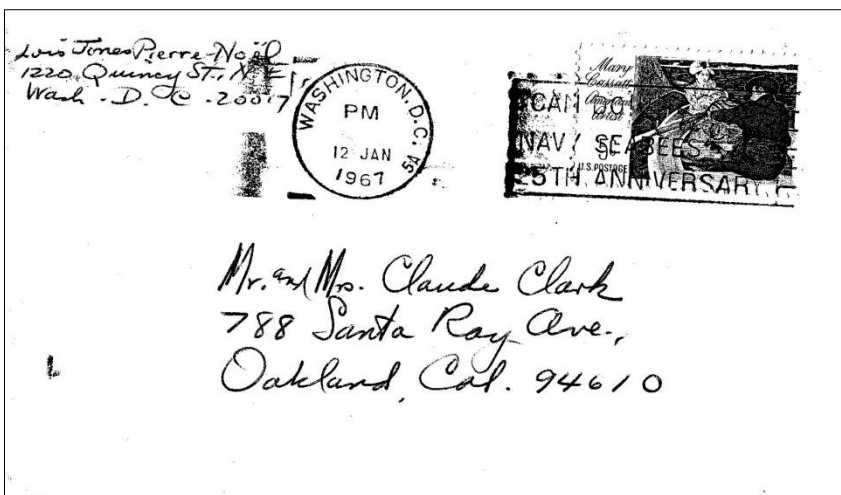 Lois Jones Pierre-Noël
1220 Quincy St., N.E.
Wash. D. C. 20017
WASHINGTON, D.C.
PM
12 JAN
1967
5A
Mary
Cassatt
American
artist
5c
U.S. POSTAGE
CAN DO
NAVY SEABEES
25TH ANNIVERSARY
Mr. and Mrs. Claude Clark
788 Santa Ray Ave.,
Oakland, Cal. 94610